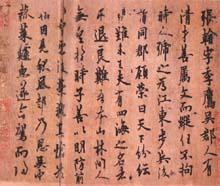 張翰字季鷹吳郡人有
清才善屬文而縱任不拘
時人號之為江東步兵後
謂同郡顧榮曰天下紛紜
禍難未已夫有四海之名者
求退良難吾本山林間人
無望於時子善以明防前
以智慮後榮執其手愴然
翰因見秋風起乃思吳中
菰菜鱸魚遂命駕而歸